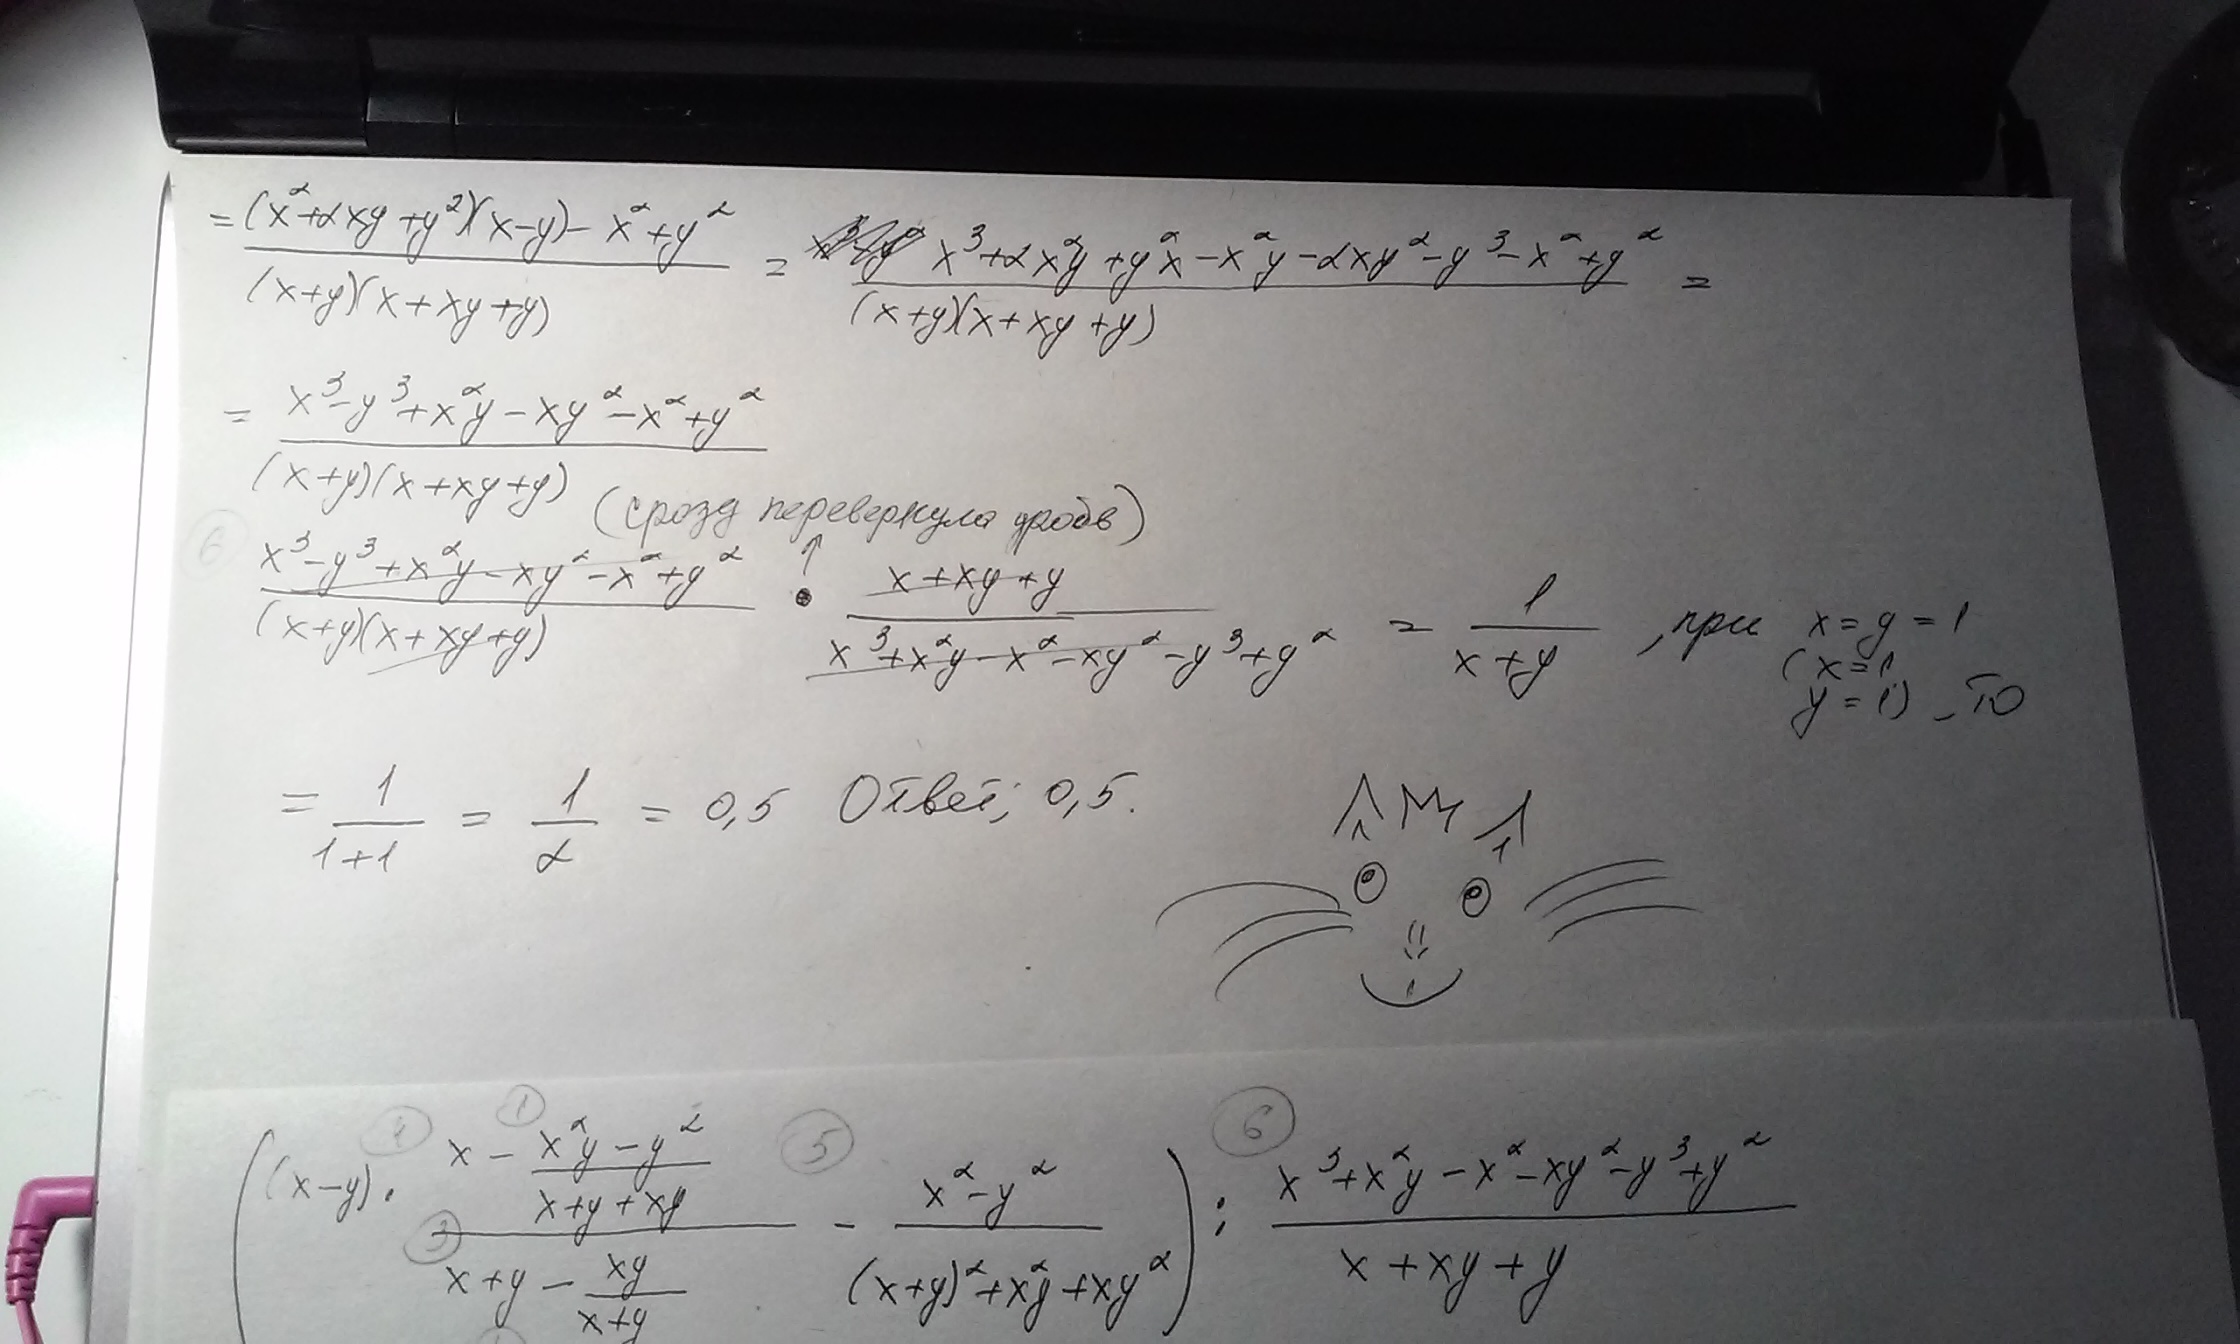 = ((x²+2xy+y²)(x-y)-x²+y²)/((x+y)(x+xy+y)) = (x³+2x²y+y²x-x²y-2xy²-y³-x²+y²)/((x+y)(x+xy+y)) =
= (x³-y³+x²y-xy²-x²+y²)/((x+y)(x+xy+y))
(сразу перевернула дробь)
6 (x³-y³+x²y-xy²-x²+y²)/((x+y)(x+xy+y)) · (x+xy+y)/(x³+x²y-x²-xy²-y³+y²) = 1/(x+y), при x=y=1
(x=1
y=1), то
= 1/(1+1) = 1/2 = 0,5 Ответ: 0,5.
1 4 5 6
((x-y)· (x - (x²y-y²)/(x+y+xy))/(x+y - xy/(x+y)) - (x²-y²)/((x+y)²+x²y+xy²)) : (x³+x²y-x²-xy²-y³+y²)/(x+xy+y)
3